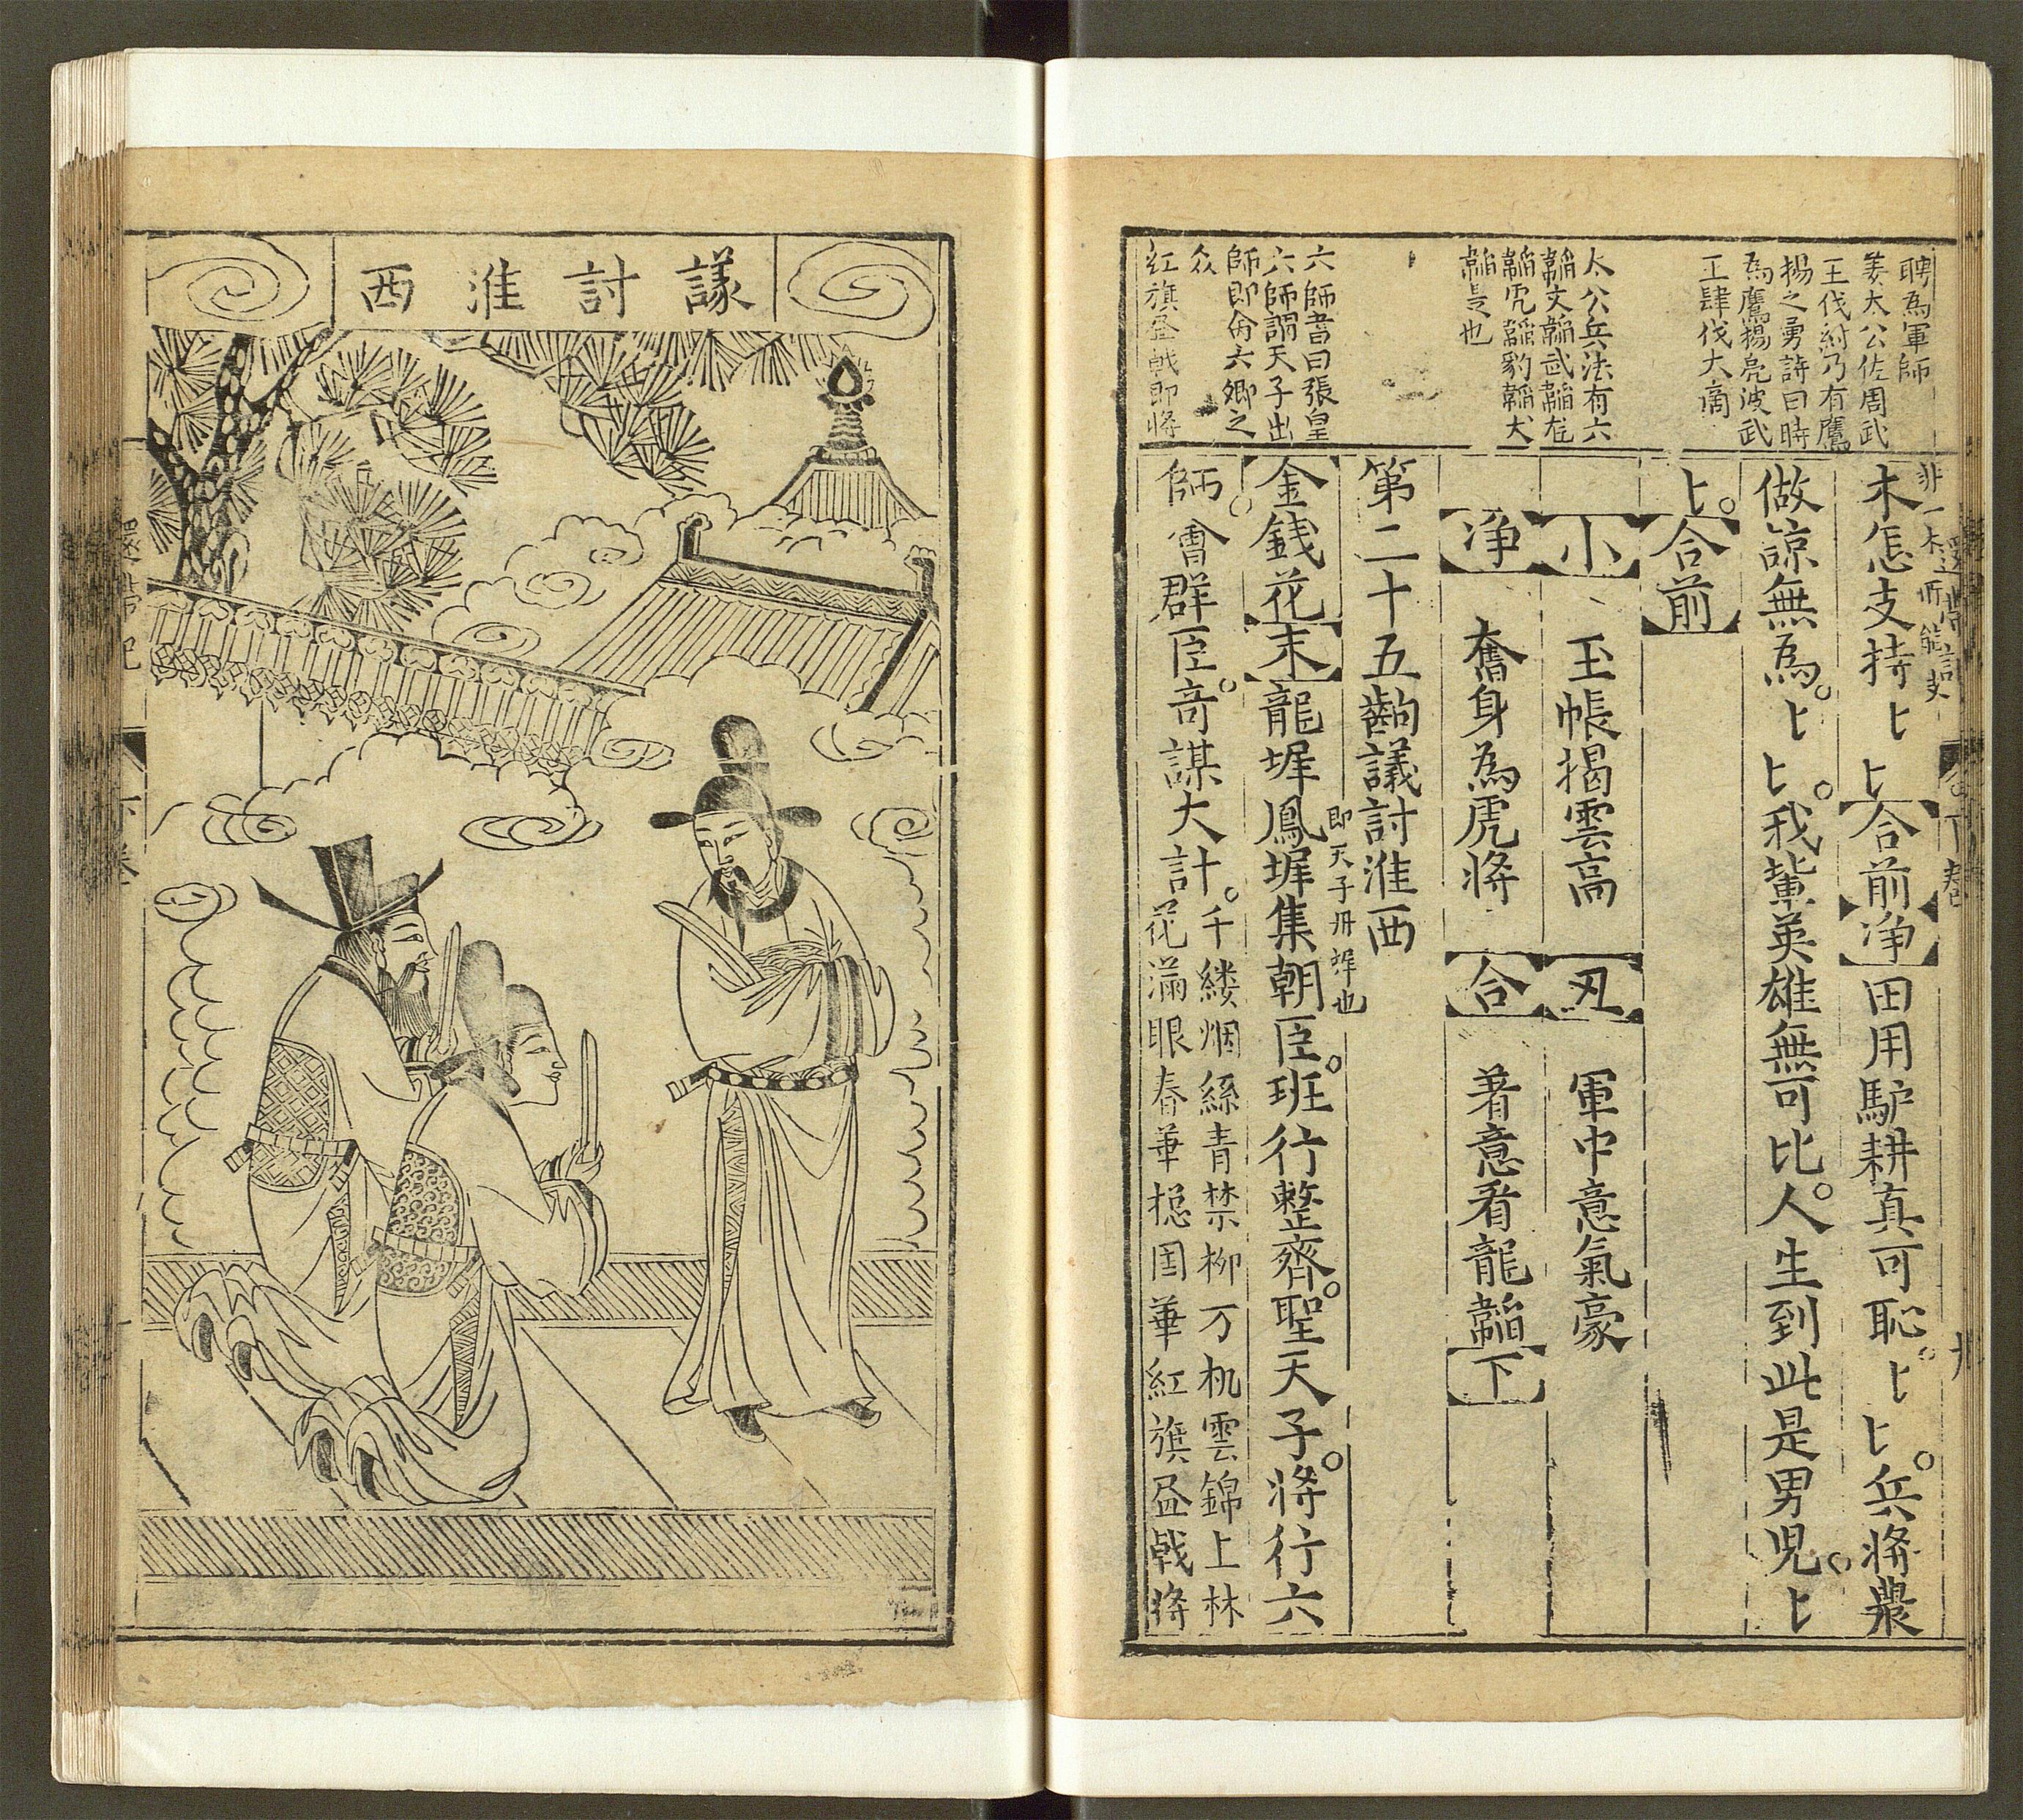 聘為軍師
姜太公佐周武
王伐紂乃有鷹
揚之勇詩曰時
為鷹揚亮彼武
王肆伐大商
太公兵法有六
韜文韜武韜龙
韜虎韜豹韜犬
韜是也
六師書曰張皇
六師謂天子出
師即俻六卿之
众
红旗盈戟即將
木怎支持〻〻合前淨田用馿耕真可恥〻〻兵將農
做諒無為〻〻我輩英雄無可比人生到此是男児〻
〻合前
小玉帳揭雲高丑軍中意氣豪
淨奮身為虎將合着意看龍韜下
第二十五齣議討淮西
金錢花末龍墀鳳墀集朝臣班行整齊聖天子將行六
即天子丹墀也
師會群臣奇謀大計千縷烟絲青禁柳万机雲錦上林
花滿眼春華揔国華紅旗盈戟將
議討淮西
還帶記
下卷